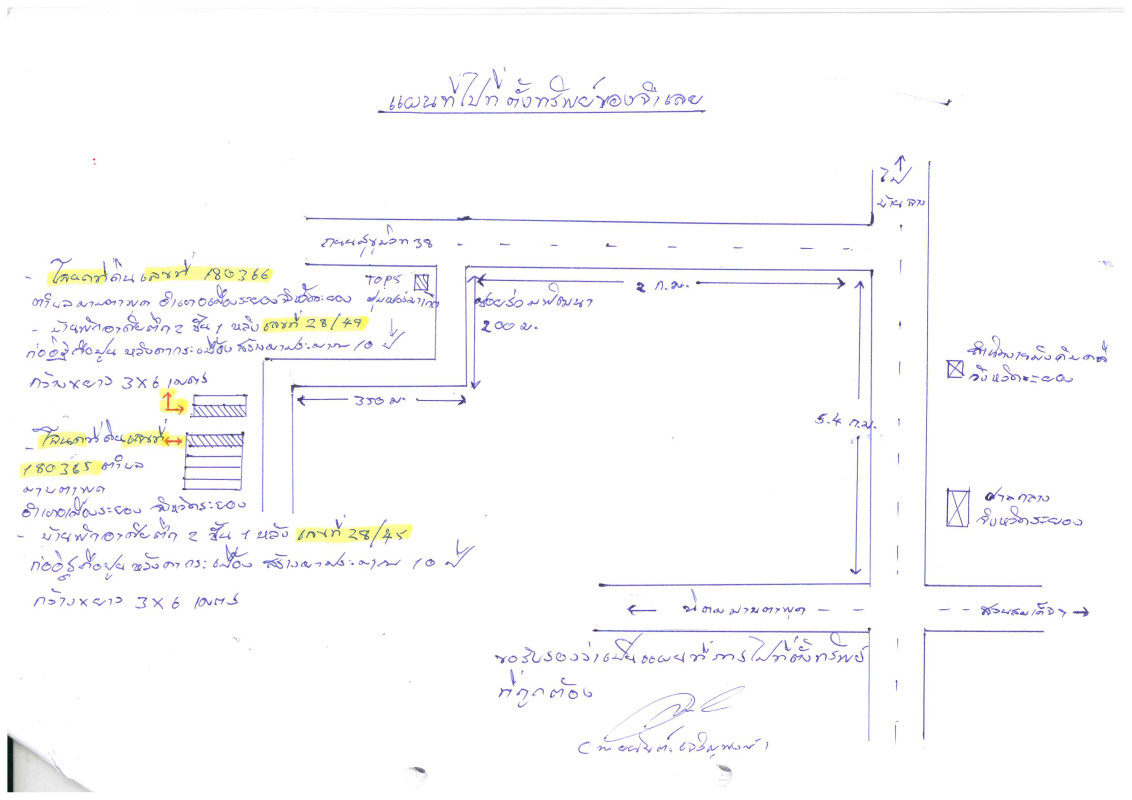 แผนที่ไปที่ตั้งทรัพย์ของจำเลย
ไป
บ้านฉาง
ถนนสุขุมวิท 38
- โฉนดที่ดินเลขที่ 180366
ตำบลมาบตาพุด อำเภอเมืองระยอง จังหวัดระยอง
- บ้านพักอาศัยตึก 2 ชั้น 1 หลัง เลขที่ 28/49
ก่ออิฐถือปูน หลังคากระเบื้อง สร้างมาประมาณ 10 ปี
กว้างxยาว 3 x 6 เมตร
TOPS
ซอยร่วมพัฒนา
200 ม.
2 ก.ม.
350 ม.
5.4 ก.ม.
สำนักงานบังคับคดี
จังหวัดระยอง
ศาลากลาง
จังหวัดระยอง
- โฉนดที่ดินเลขที่
180365 ตำบล
มาบตาพุด
อำเภอเมืองระยอง จังหวัดระยอง
- บ้านพักอาศัยตึก 2 ชั้น 1 หลัง เลขที่ 28/45
ก่ออิฐถือปูน หลังคากระเบื้อง สร้างมาประมาณ 10 ปี
กว้างxยาว 3 x 6 เมตร
นิคมมาบตาพุด
สวนสมเด็จฯ
ขอรับรองว่าเป็นแผนที่การไปที่ตั้งทรัพย์
ที่ถูกต้อง